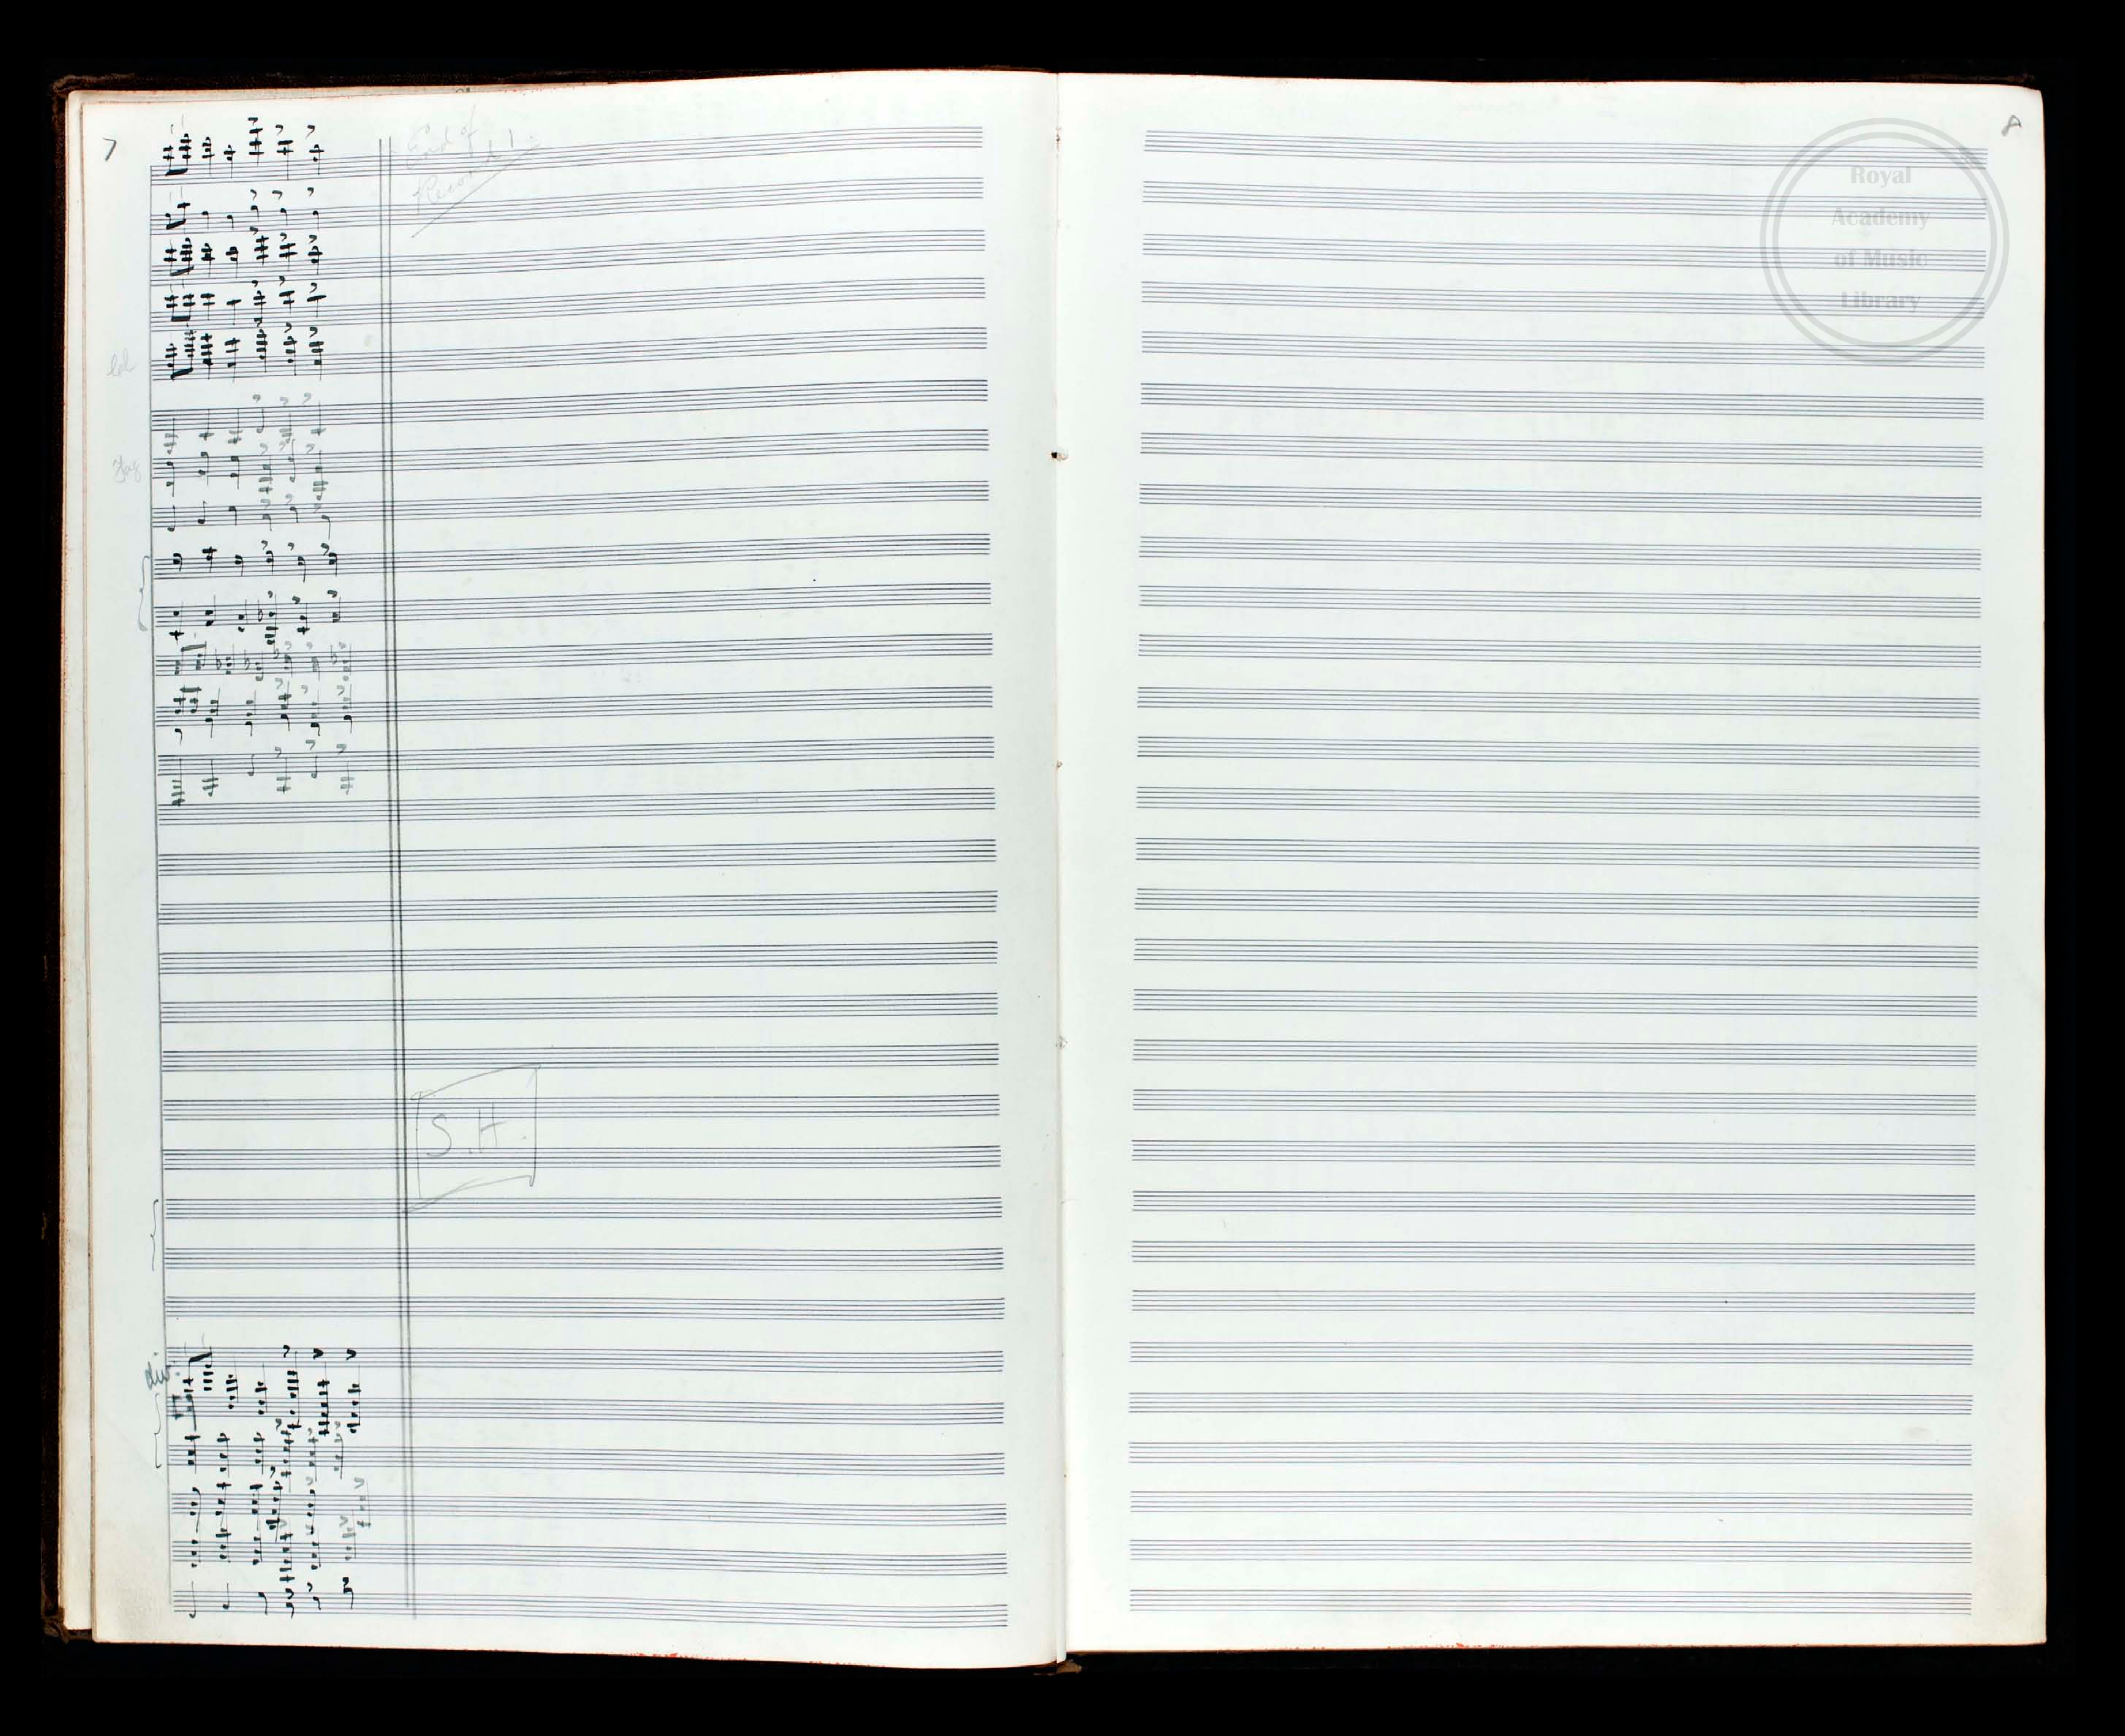 7
End of
Record 1
S.H.
div.
8
Royal
Academy
of Music
Library